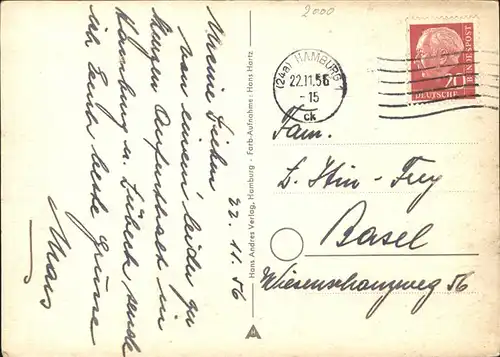 2000
22.11.56
Meine Lieben
von einem leider zu
kurzen Aufenthalt in
Hamburg u. Lübeck sende
ich Euch beste Grüsse
Hans Andres Verlag, Hamburg - Farb-Aufnahme: Hans Hartz
(24a) HAMBURG 1
22.11.56
-15
ck
DEUTSCHE
BUNDESPOST
20
Fam.
Basel
Wiesenschanzweg 56